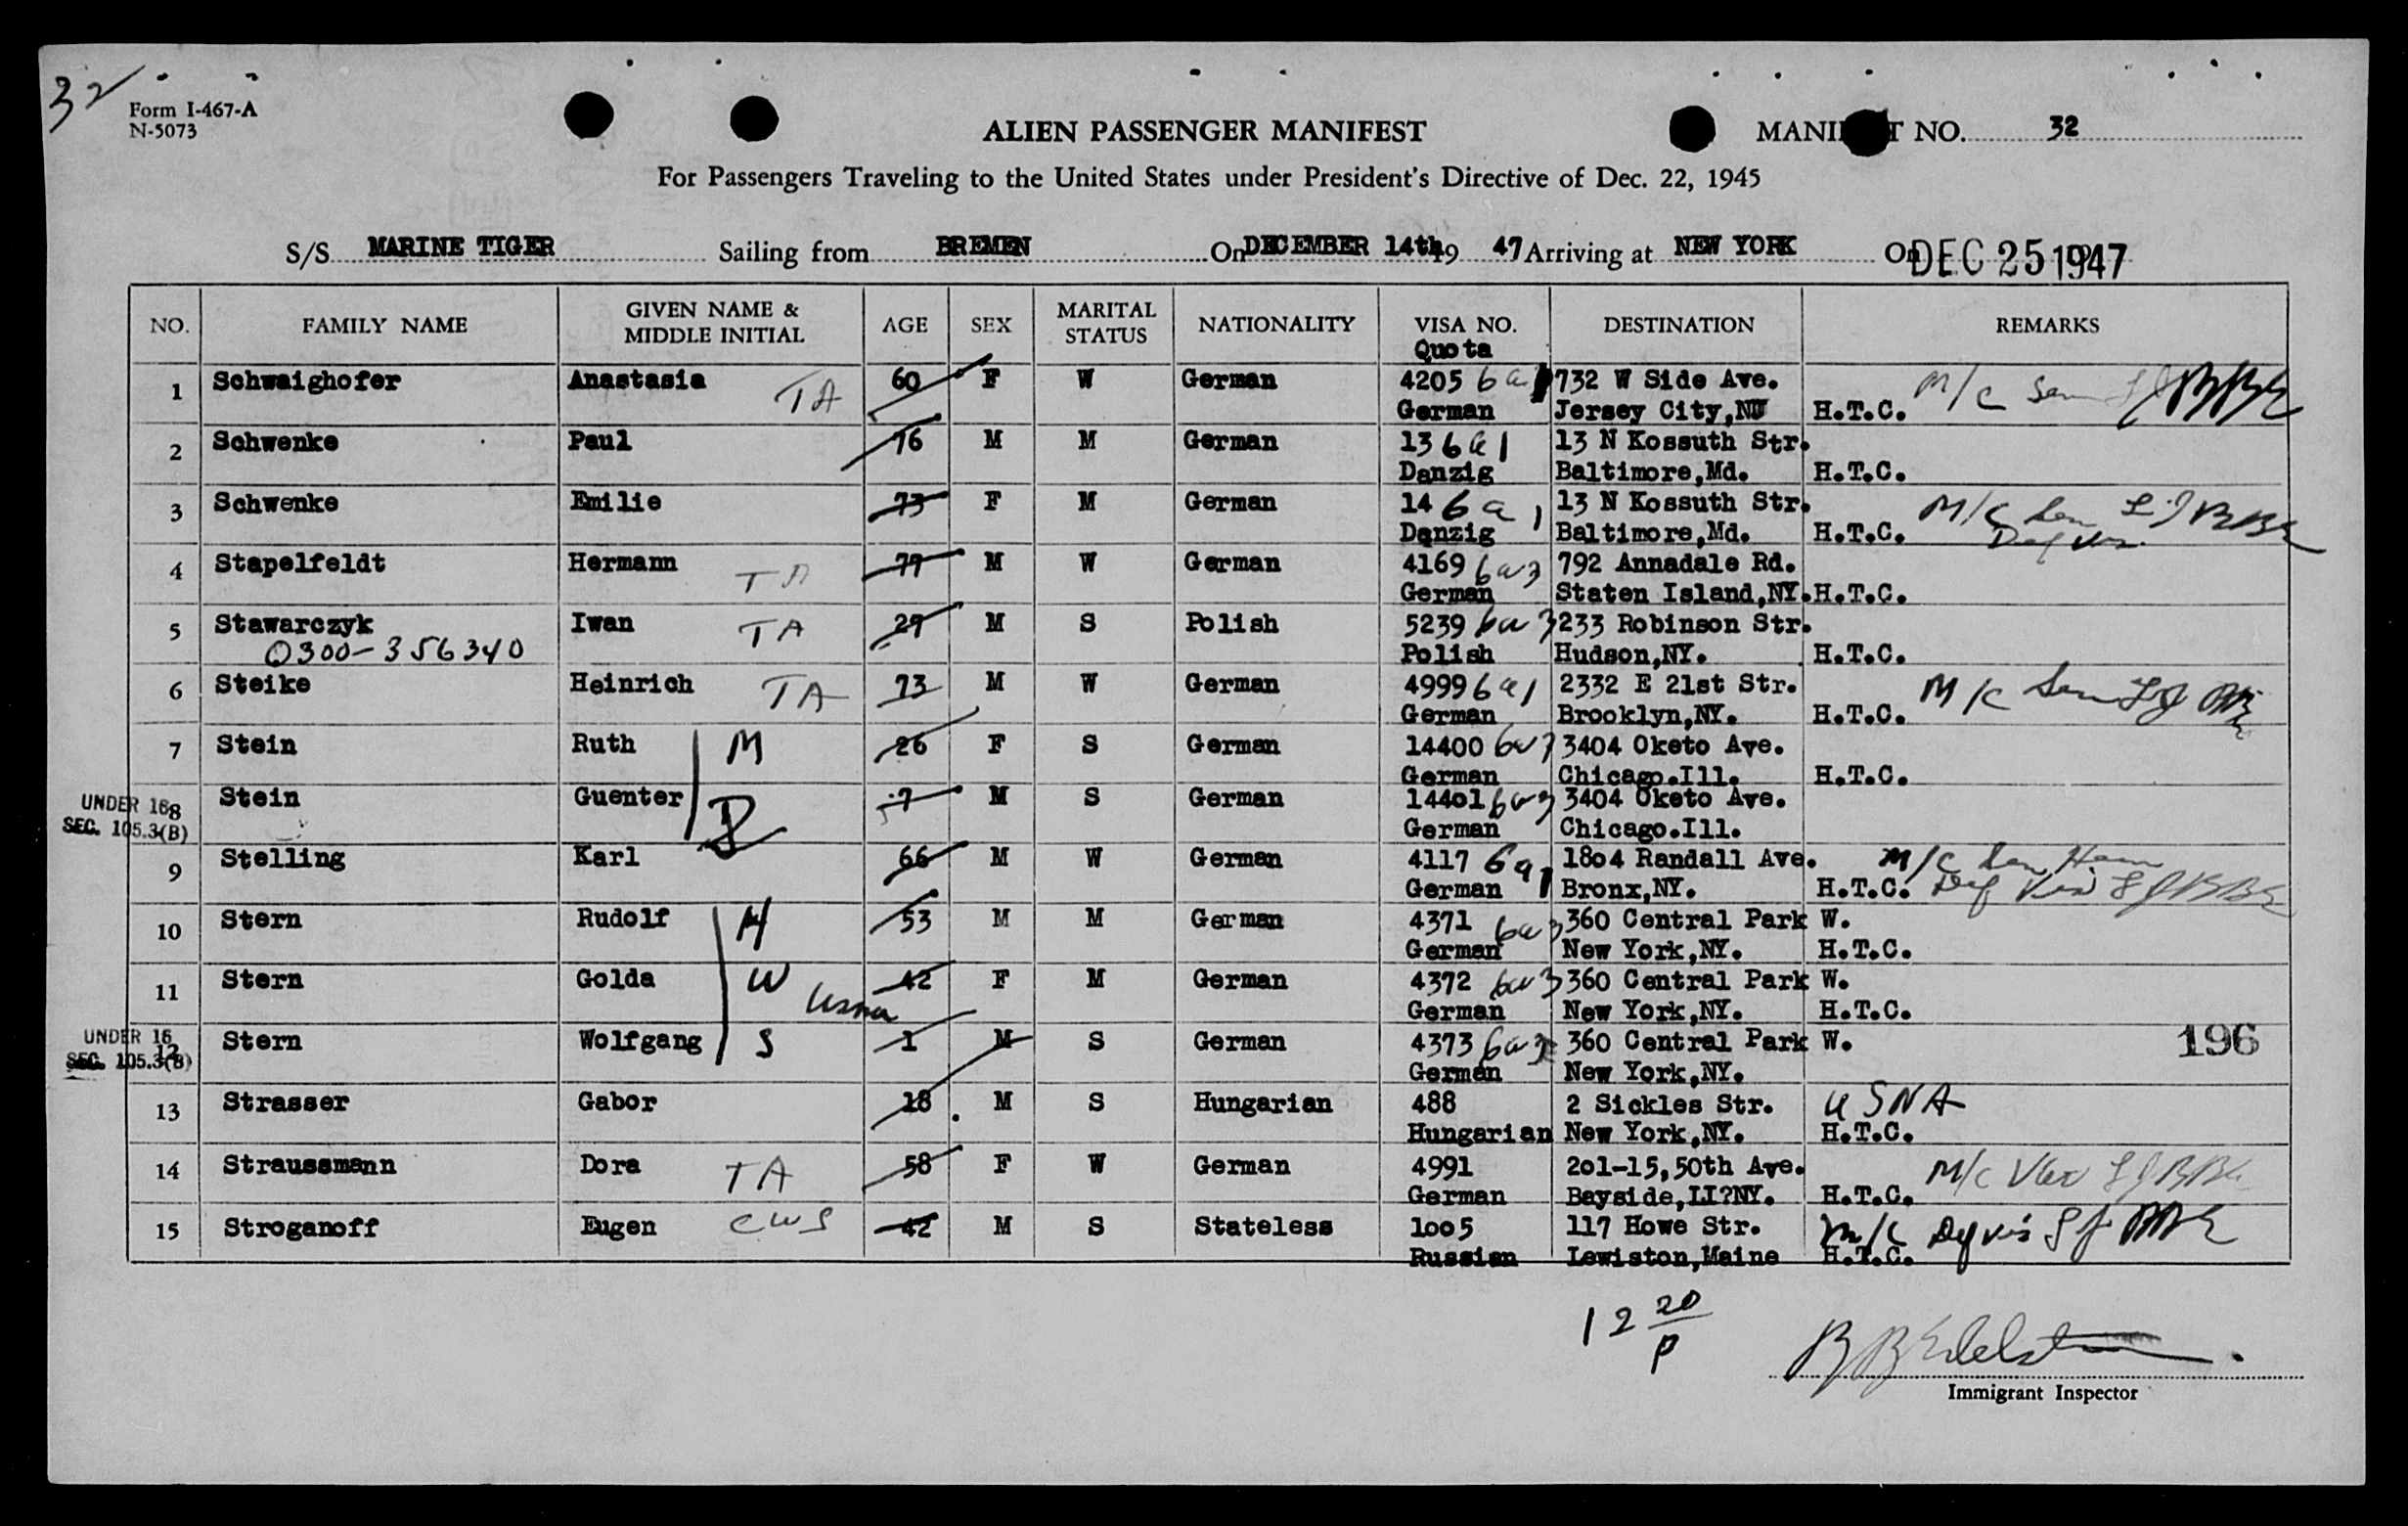 32
Form I-467-A
N-5073
ALIEN PASSENGER MANIFEST
MANI T NO. 32
For Passengers Traveling to the United States under President's Directive of Dec. 22, 1945
S/S MARINE TIGER Sailing from BREMEN On DECEMBER 14th 19 47 Arriving at NEW YORK On DEC 25 1947
NO. FAMILY NAME GIVEN NAME & MIDDLE INITIAL AGE SEX MARITAL STATUS NATIONALITY VISA NO. Quota DESTINATION REMARKS
1 Schwaighofer Anastasia TA 60 F W German 4205 6a1 732 W Side Ave. M/C Sen
German Jersey City,NJ H.T.C.
2 Schwenke Paul 76 M M German 13 6a1 13 N Kossuth Str.
Danzig Baltimore,Md. H.T.C.
3 Schwenke Emilie 73 F M German 14 6a1 13 N Kossuth Str. M/C Sen
Danzig Baltimore,Md. H.T.C.
4 Stapelfeldt Hermann TA 77 M W German 4169 6a3 792 Annadale Rd.
German Staten Island,NY. H.T.C.
5 Stawarczyk Iwan TA 27 M S Polish 5239 6a3 233 Robinson Str.
0300-356340 Polish Hudson,NY. H.T.C.
6 Steike Heinrich TA 73 M W German 4999 6a1 2332 E 21st Str. M/C Sen
German Brooklyn,NY. H.T.C.
7 Stein Ruth M 26 F S German 14400 6a3 3404 Oketo Ave.
German Chicago.Ill. H.T.C.
UNDER 16 8 Stein Guenter 7 M S German 14401 6a3 3404 Oketo Ave.
SEC. 105.3(B) German Chicago.Ill.
9 Stelling Karl 66 M W German 4117 6a1 1804 Randall Ave. M/C Sen
German Bronx,NY. H.T.C.
10 Stern Rudolf H 53 M M German 4371 6a3 360 Central Park W.
German New York,NY. H.T.C.
11 Stern Golda W 42 F M German 4372 6a3 360 Central Park W.
German New York,NY. H.T.C.
UNDER 16 12 Stern Wolfgang S 1 M S German 4373 6a3 360 Central Park W. 196
SEC. 105.3(B) German New York,NY.
13 Strasser Gabor 18 M S Hungarian 488 2 Sickles Str. USNA
Hungarian New York,NY. H.T.C.
14 Straussmann Dora TA 58 F W German 4991 201-15,50th Ave. M/C
German Bayside,LI?NY. H.T.C.
15 Stroganoff Eugen CWS 42 M S Stateless 1005 117 Howe Str. M/C
Russian Lewiston,Maine H.T.C.
12 20/P
Immigrant Inspector